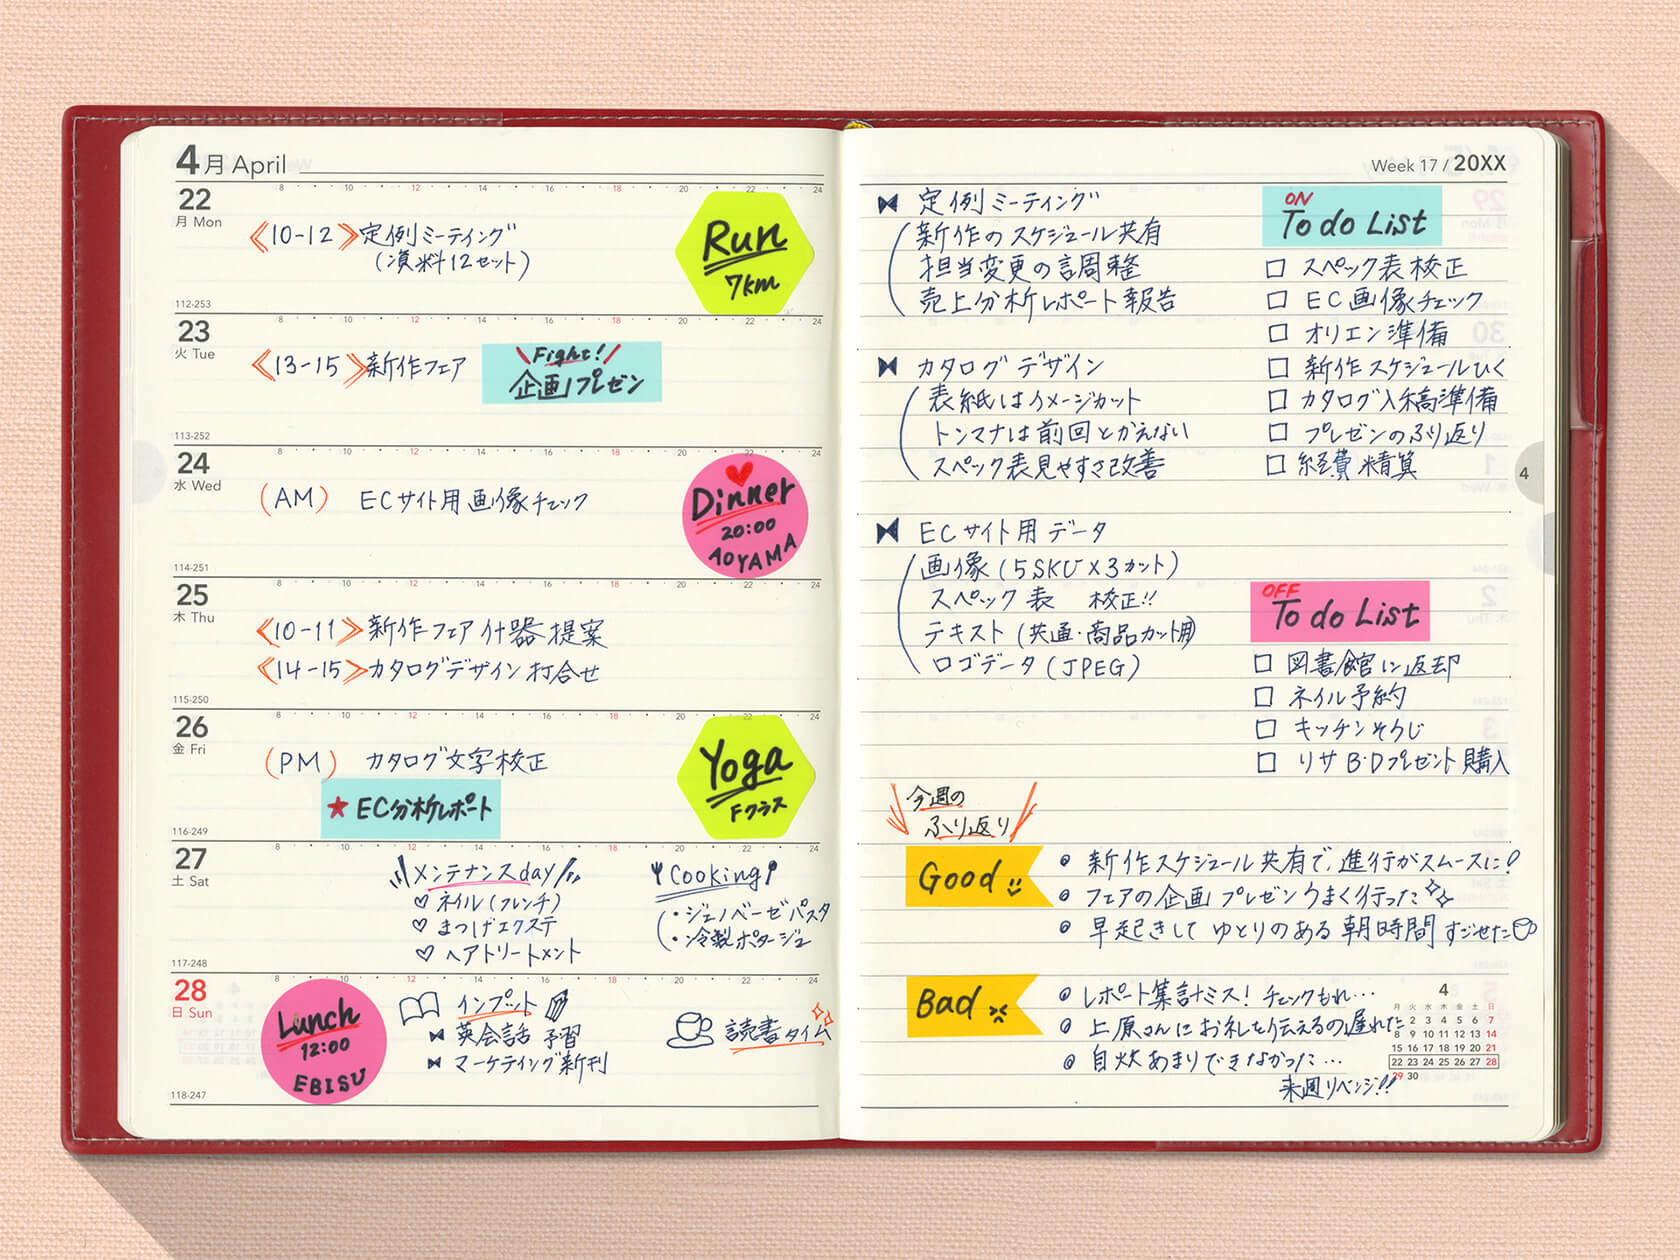 4月 April
22
月 Mon
8 10 12 14 16 18 20 22 24
《10-12》定例ミーティング
(資料12セット)
Run
7km
112-253
23
火 Tue
8 10 12 14 16 18 20 22 24
《13-15》新作フェア
\Fight!/
企画プレゼン
113-252
24
水 Wed
8 10 12 14 16 18 20 22 24
(AM) ECサイト用画像チェック
Dinner
20:00
AOYAMA
114-251
25
木 Thu
8 10 12 14 16 18 20 22 24
《10-11》新作フェア什器提案
《14-15》カタログデザイン打合せ
115-250
26
金 Fri
8 10 12 14 16 18 20 22 24
(PM) カタログ文字校正
★EC分析レポート
Yoga
Fクラス
116-249
27
土 Sat
8 10 12 14 16 18 20 22 24
メンテナンスday
♡ネイル(フレンチ)
♡まつげエクステ
♡ヘアトリートメント
Cooking
(・ジェノベーゼパスタ
・冷製ポタージュ
117-248
28
日 Sun
8 10 12 14 16 18 20 22 24
Lunch
12:00
EBISU
インプット
英会話 予習
マーケティング新刊
読書タイム
118-247
Week 17 / 20XX
定例ミーティング
新作のスケジュール共有
担当変更の調整
売上分析レポート報告
カタログデザイン
表紙はイメージカット
トンマナは前回とかえない
スペック表見やすさ改善
ECサイト用データ
画像(5SKU×3カット)
スペック表 校正!!
テキスト(共通・商品カット用)
ロゴデータ(JPEG)
ON
To do List
□ スペック表校正
□ EC画像チェック
□ オリエン準備
□ 新作スケジュールひく
□ カタログ入稿準備
□ プレゼンのふり返り
□ 経費精算
4
OFF
To do List
□ 図書館に返却
□ ネイル予約
□ キッチンそうじ
□ リサB・Dプレゼント購入
今週の
ふり返り
Good
新作スケジュール共有で、進行がスムースに!
フェアの企画プレゼンうまく行った
早起きして ゆとりのある朝時間すごせた
Bad
レポート集計ミス! チェックもれ…
上原さんにお礼を伝えるの遅れた
自炊あまりできなかった…
来週リベンジ!!
4
月 火 水 木 金 土 日
1 2 3 4 5 6 7
8 9 10 11 12 13 14
15 16 17 18 19 20 21
22 23 24 25 26 27 28
29 30